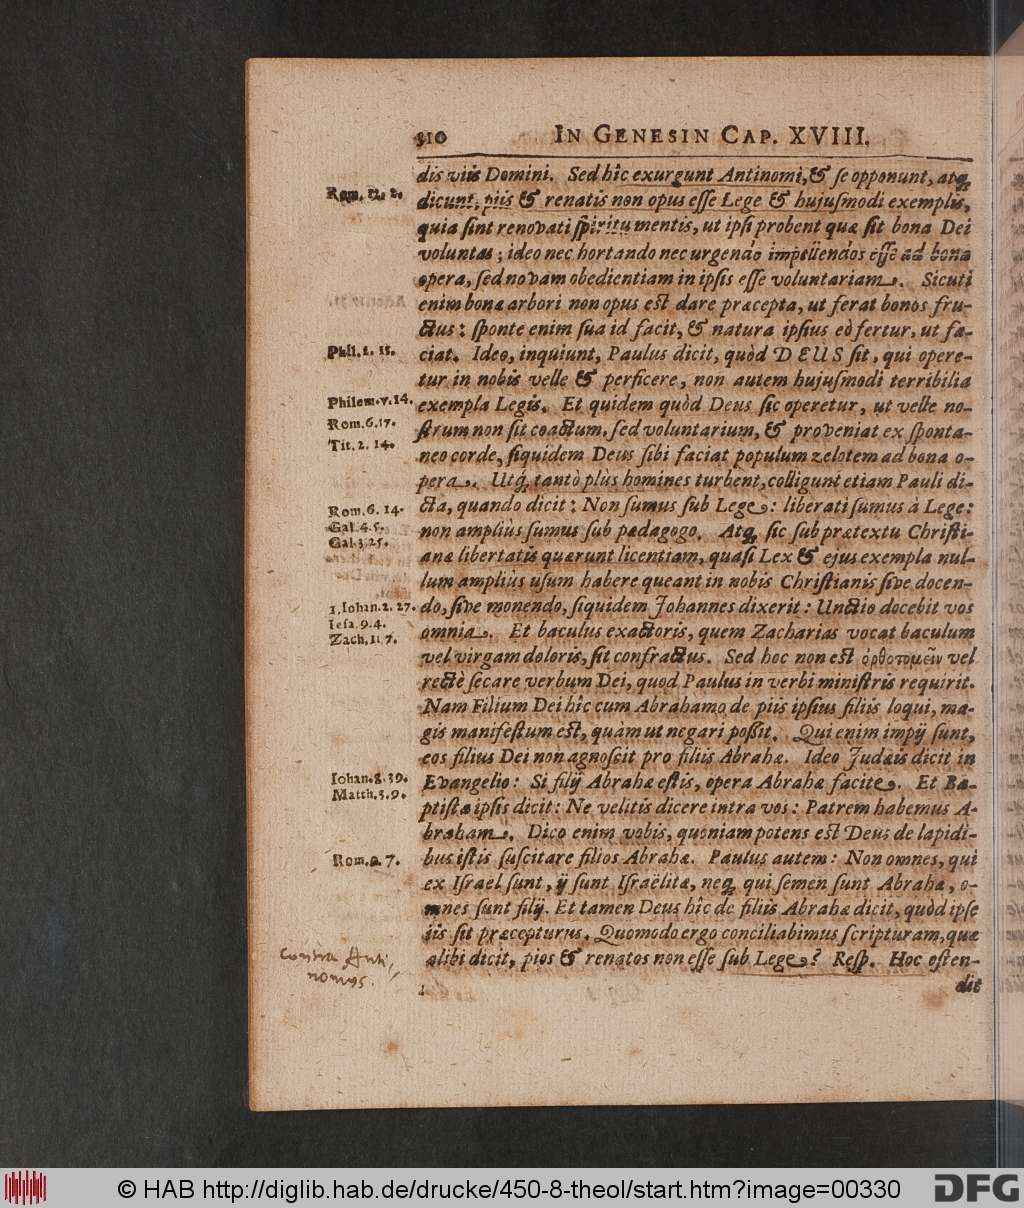 310 IN GENESIN CAP. XVIII.
dis viis Domini. Sed hîc exurgunt Antinomi, & ſe opponunt, atq;
Rom. 12. 2.
dicunt, piis & renatis non opus eſſe Lege & hujuſmodi exemplis,
quia ſint renovati ſpiritu mentis, ut ipſi probent quæ ſit bona Dei
voluntas; ideo nec hortando nec urgendo impellendos eſſe ad bona
opera, ſed novam obedientiam in ipſis eſſe voluntariam. Sicuti
enim bonæ arbori non opus eſt dare præcepta, ut ferat bonos fru-
ctus: ſponte enim ſua id facit, & natura ipſius eò fertur, ut fa-
Phil. 2. 13.
ciat. Ideo, inquiunt, Paulus dicit, quòd DEUS ſit, qui opere-
tur in nobis velle & perficere, non autem hujuſmodi terribilia
Philem. v. 14.
exempla Legis. Et quidem quòd Deus ſic operetur, ut velle no-
Rom. 6. 17.
ſtrum non ſit coactum, ſed voluntarium, & proveniat ex ſponta-
Tit. 2. 14.
neo corde, ſiquidem Deus ſibi faciat populum zelotem ad bona o-
pera. Utq; tantò plùs homines turbent, colligunt etiam Pauli di-
Rom. 6. 14.
cta, quando dicit: Non ſumus ſub Lege: liberati ſumus à Lege:
Gal. 4. 5.
Gal. 3. 25.
non ampliùs ſumus ſub pædagogo. Atq; ſic ſub prætextu Chriſti-
anæ libertatis quærunt licentiam, quaſi Lex & ejus exempla nul-
lum ampliùs uſum habere queant in nobis Chriſtianis ſive docen-
1. Iohan. 2. 27.
do, ſive monendo, ſiquidem Johannes dixerit: Unctio docebit vos
Ieſa. 9. 4.
omnia. Et baculus exactoris, quem Zacharias vocat baculum
Zach. 11. 7.
vel virgam doloris, ſit confractus. Sed hoc non eſt ὀρθοτομεῖν vel
rectè ſecare verbum Dei, quod Paulus in verbi miniſtris requirit.
Nam Filium Dei hîc cum Abrahamo de piis ipſius filiis loqui, ma-
gis manifeſtum eſt, quàm ut negari poſſit. Qui enim impij ſunt,
eos filius Dei non agnoſcit pro filiis Abrahæ. Ideo Judæis dicit in
Iohan. 8. 39.
Evangelio: Si filij Abrahæ eſtis, opera Abrahæ facite. Et Ba-
Matth. 3. 9.
ptiſta ipſis dicit: Ne velitis dicere intra vos: Patrem habemus A-
braham. Dico enim vobis, quoniam potens eſt Deus de lapidi-
Rom. 9. 7.
bus iſtis ſuſcitare filios Abrahæ. Paulus autem: Non omnes, qui
ex Iſrael ſunt, ij ſunt Iſraëlitæ, neq; qui ſemen ſunt Abrahæ, o-
mnes ſunt filij. Et tamen Deus hîc de filiis Abrahæ dicit, quòd ipſe
iis ſit præcepturus. Quomodo ergo conciliabimus ſcripturam, quæ
contra Anti/
nomos.
alibi dicit, pios & renatos non eſſe ſub Lege? Reſp. Hoc oſten-
dit
© HAB http://diglib.hab.de/drucke/450-8-theol/start.htm?image=00330
DFG